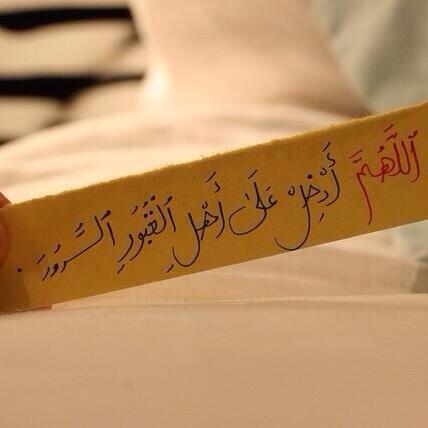 اَللَّهُمَّ أَدْخِلْ عَلَى أَهْلِ الْقُبُورِ السُّرُورَ.